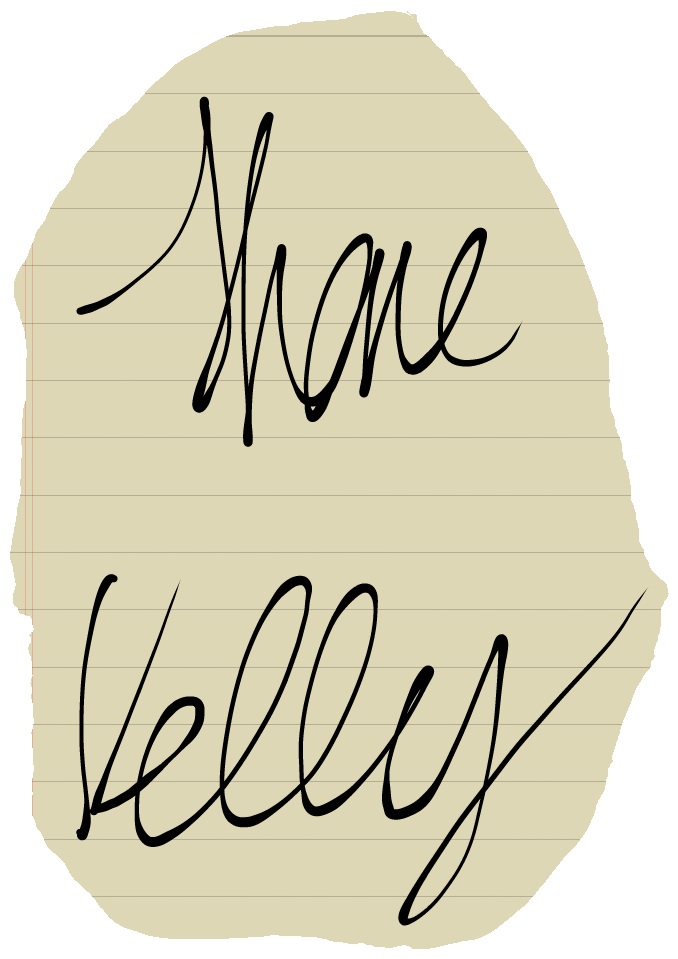 Shane
Kelly